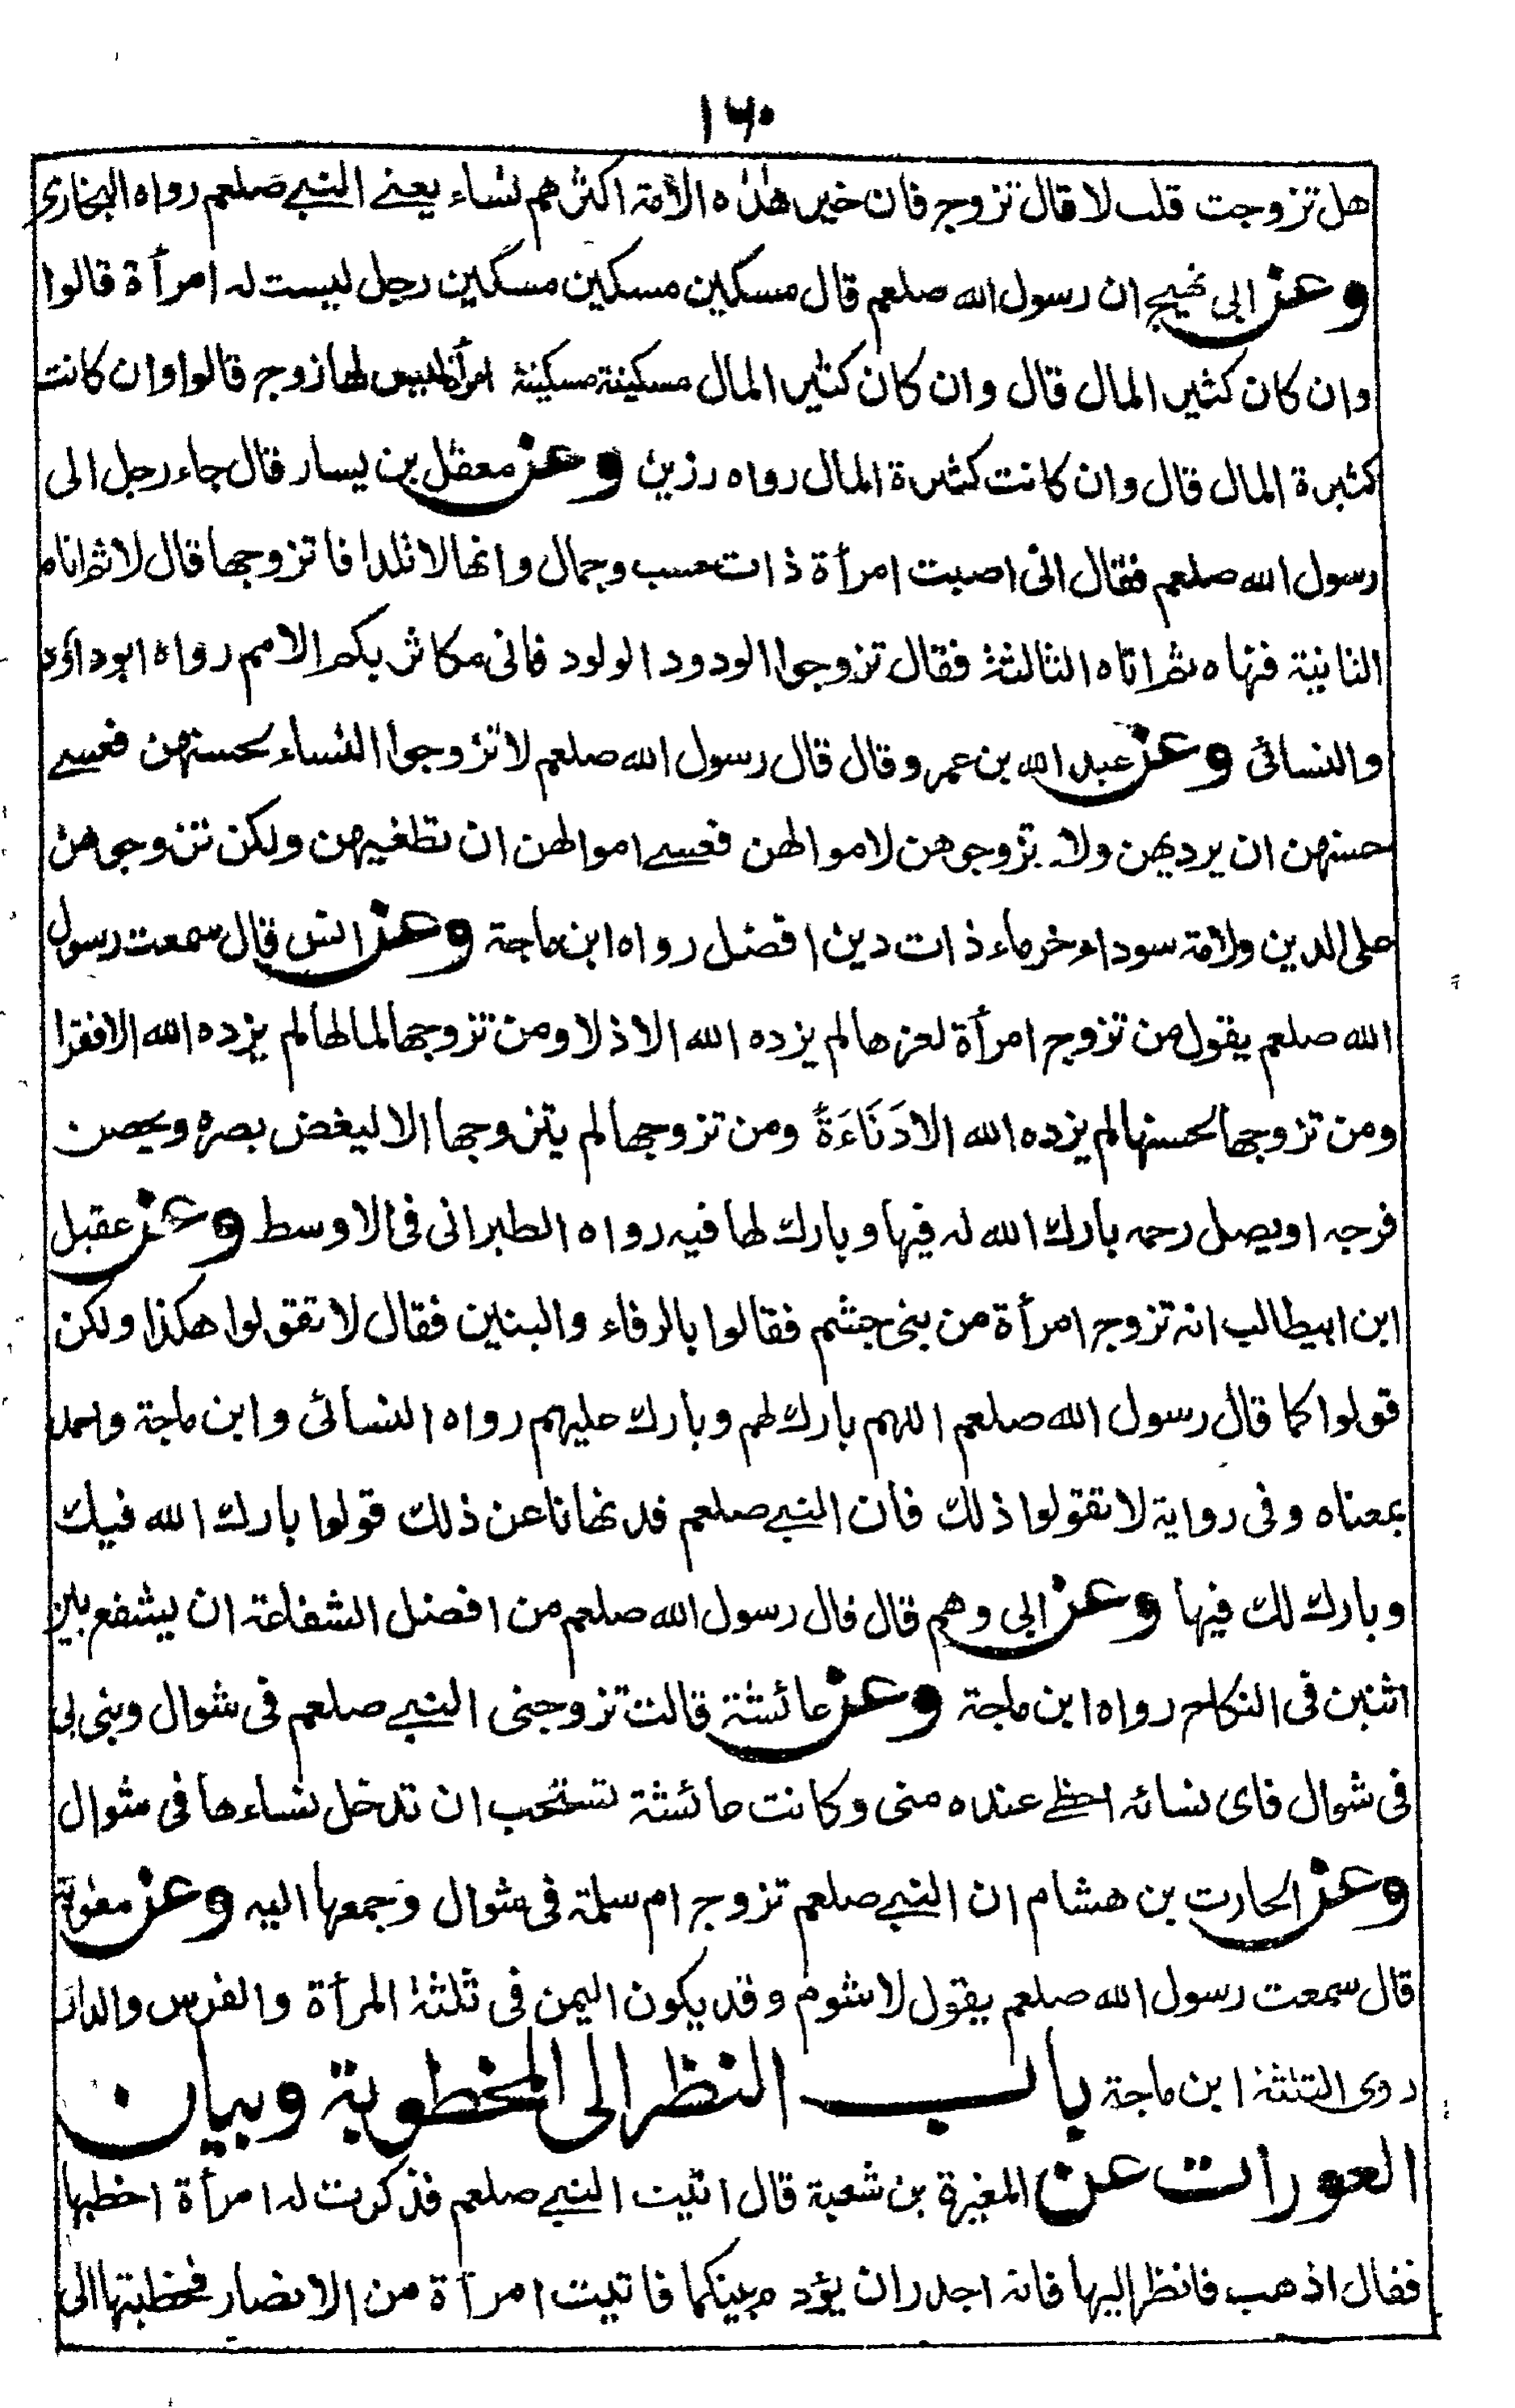 ١٦٠
هل تزوجت قلت لا قال تزوج فان خير هذه الأمة اكثرهم نساء يعني النبي صلعم رواه البخاري
وعن ابي نجيح ان رسول الله صلعم قال مسكين مسكين مسكين رجل ليست له امرأة قالوا
وان كان كثير المال قال وان كان كثير المال مسكينة مسكينة امرأة ليس لها زوج قالوا وان كانت
كثيرة المال قال وان كانت كثيرة المال رواه رزين وعن معقل بن يسار قال جاء رجل الى
رسول الله صلعم فقال انى اصبت امرأة ذات حسب وجمال وانها لا تلد افا تزوجها قال لا ثم اتاه
الثانية فنهاه ثم اتاه الثالثة فقال تزوجوا الودود الولود فانى مكاثر بكم الامم رواه ابوداؤد
والنسائى وعن عبد الله بن عمرو قال قال رسول الله صلعم لا تزوجوا النساء لحسنهن فعسى
حسنهن ان يرديهن ولا تزوجوهن لاموالهن فعسى اموالهن ان تطغيهن ولكن تزوجوهن
على الدين ولامة سوداء خرماء ذات دين افضل رواه ابن ماجة وعن انس قال سمعت رسول
الله صلعم يقول من تزوج امرأة لعزها لم يزده الله الا ذلا ومن تزوجها لمالها لم يزده الله الا فقرا
ومن تزوجها لحسنها لم يزده الله الا دَنَاءَةً ومن تزوجها لم يتزوجها الا ليغض بصره ويحصن
فرجه او يصل رحمه بارك الله له فيها وبارك لها فيه رواه الطبرانى فى الاوسط وعن عقيل
ابن ابيطالب انه تزوج امرأة من بنى جثم فقالوا بالرفاء والبنين فقال لا تقولوا هكذا ولكن
قولوا كما قال رسول الله صلعم اللهم بارك لهم وبارك عليهم رواه النسائى وابن ماجة واحمد
بمعناه وفى رواية لا تقولوا ذلك فان النبي صلعم قد نهانا عن ذلك قولوا بارك الله فيك
وبارك لك فيها وعن ابى وهم قال قال رسول الله صلعم من افضل الشفاعة ان يشفع بين
اثنين فى النكاح رواه ابن ماجة وعن عائشة قالت تزوجنى النبي صلعم فى شوال وبنى بى
فى شوال فاى نسائه احظى عنده منى وكانت عائشة تستحب ان تدخل نساءها فى شوال
وعن الحارث بن هشام ان النبي صلعم تزوج ام سلمة فى شوال وجمعها اليه وعن معٰوية
قال سمعت رسول الله صلعم يقول لا شوم وقد يكون اليمن فى ثلثة المرأة والفرس والدار
روى الثلثة ابن ماجة باب النظر الى المخطوبة وبيان
العورات عن المغيرة بن شعبة قال اتيت النبي صلعم فذكرت له امرأة اخطبها
فقال اذهب فانظر اليها فانه اجدر ان يؤدم بينكما فاتيت امرأة من الانصار فخطبتها الى